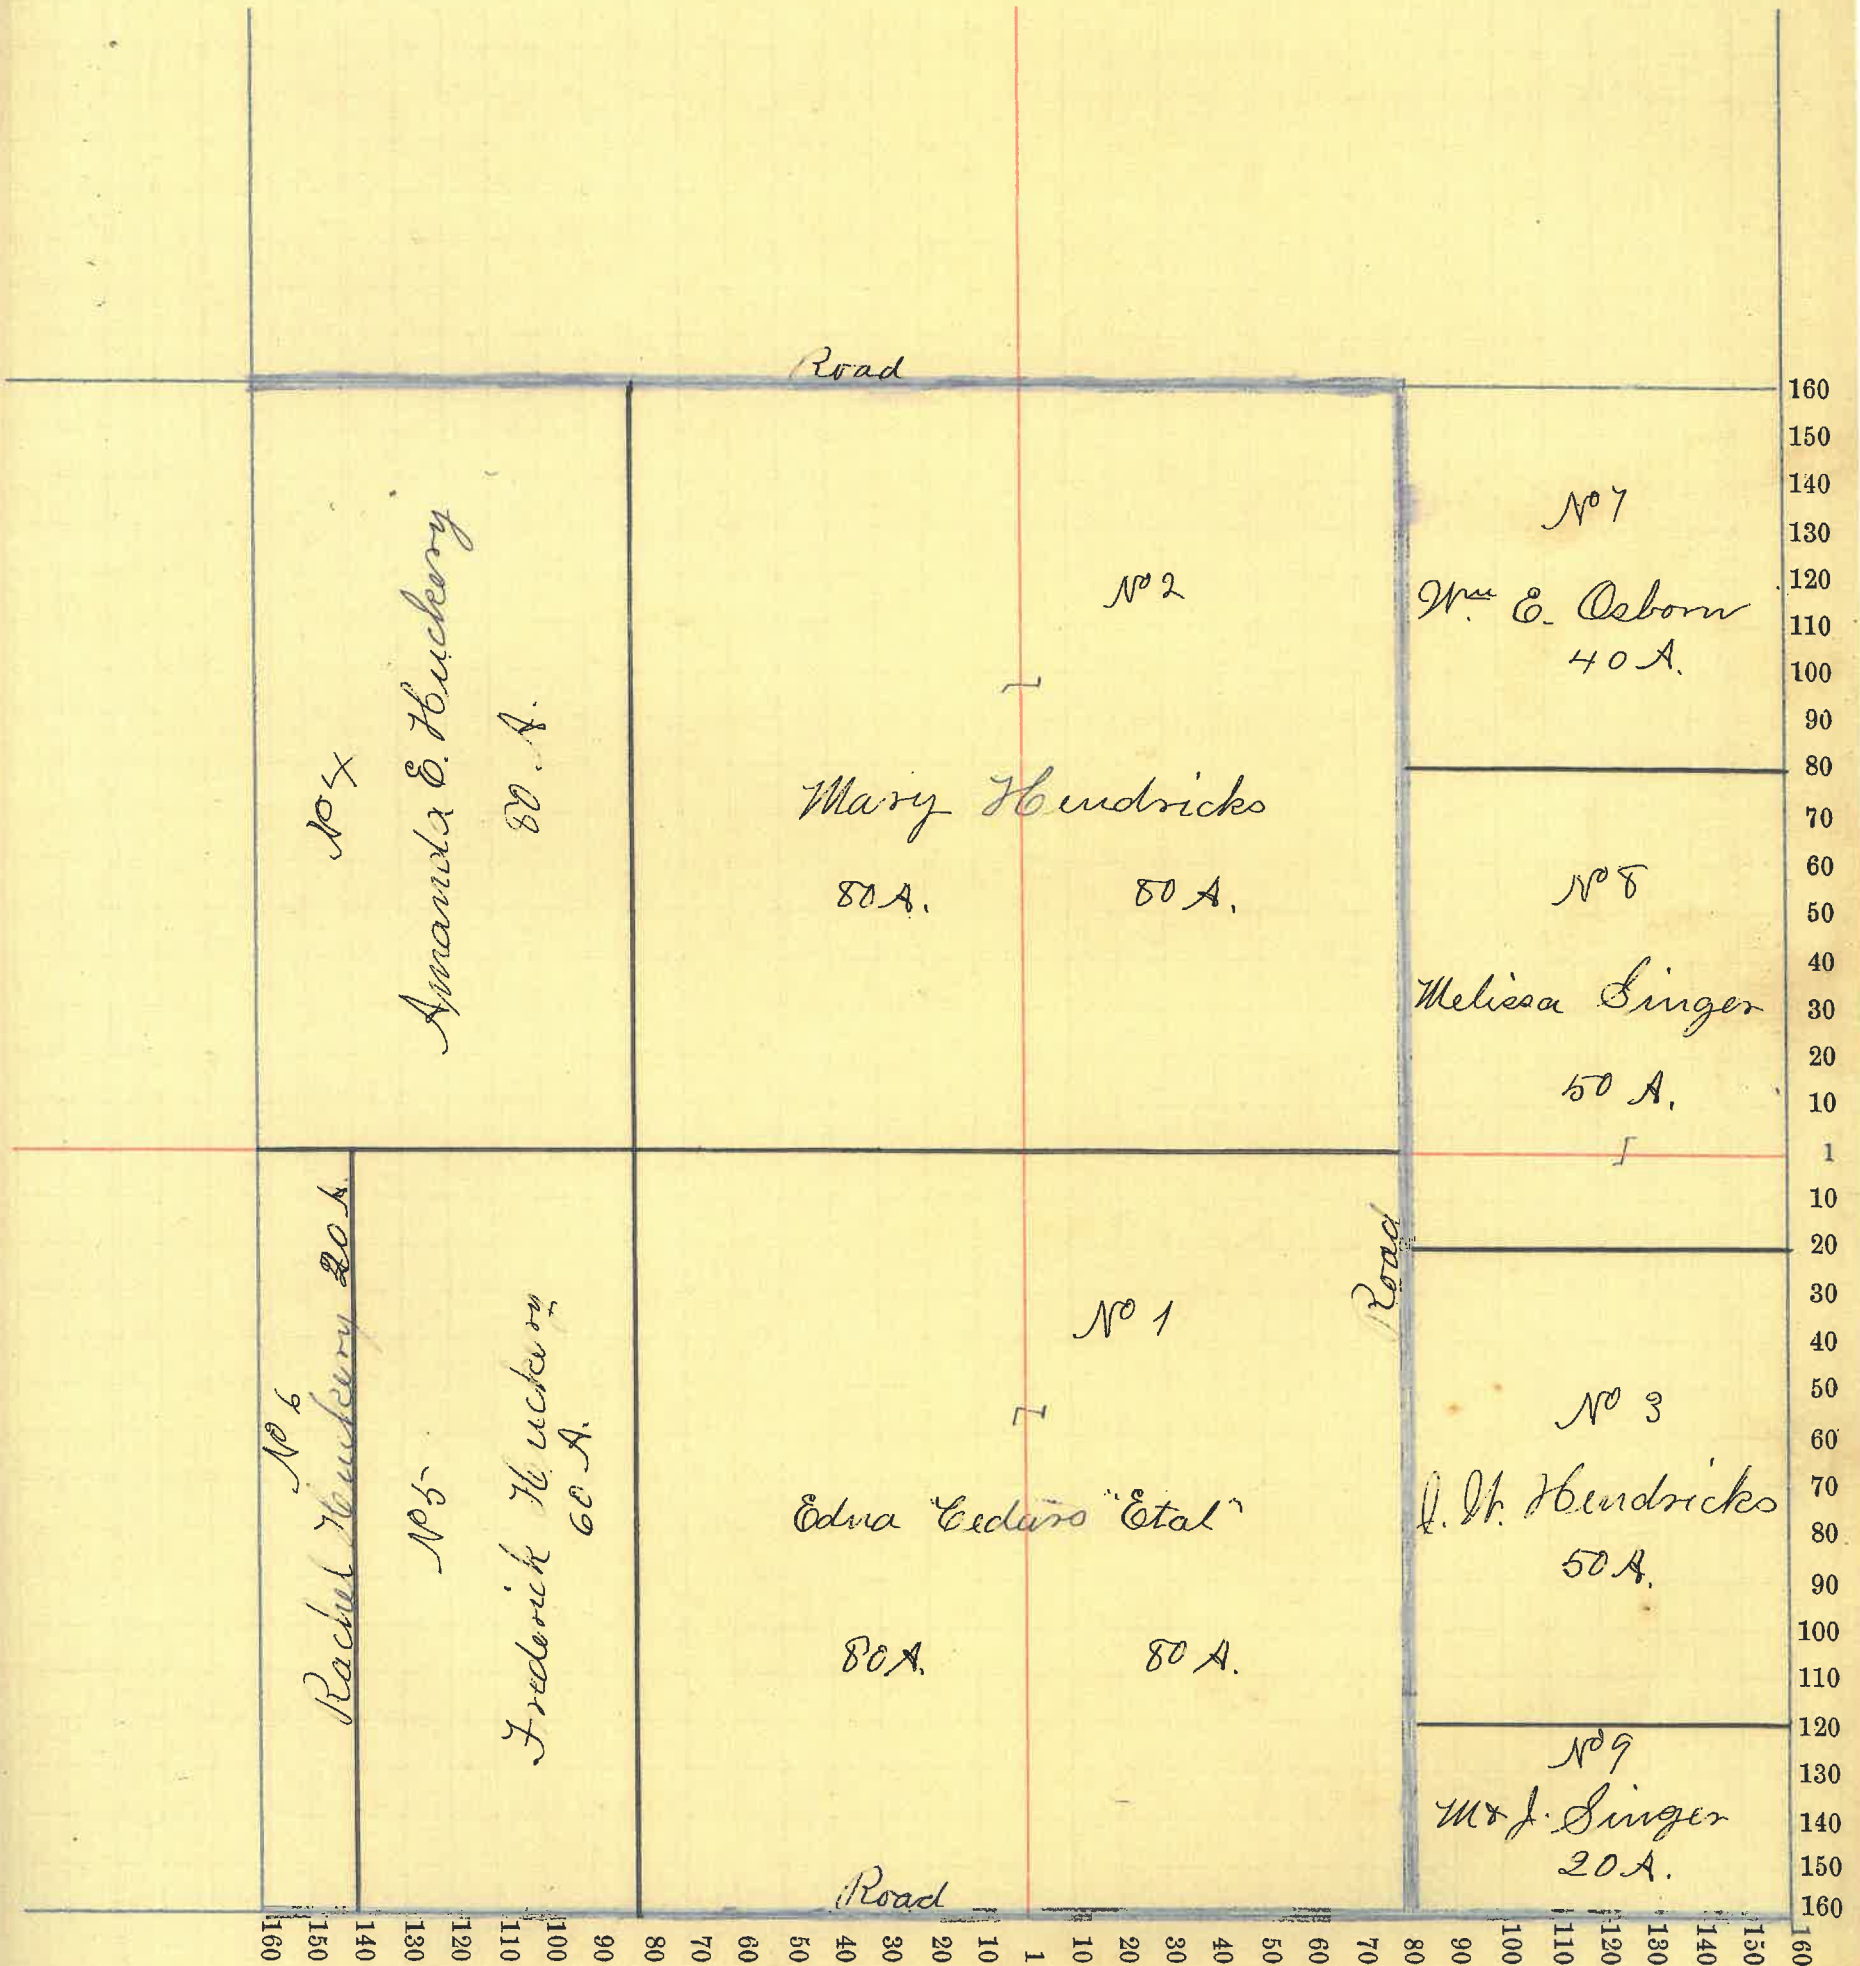 Road
No 4
Amanda E. Huckery
80. A.
No 2
Mary Hendricks
80 A. 80 A.
No 7
Wm E. Osborn
40 A.
No 8
Melissa Singer
50 A.
No 6
Rachel Huckery 20 A.
No 5
Frederick Huckery
60 A.
No 1
Edna "Cedars "Etal"
80 A. 80 A.
Road
No 3
J. W. Hendricks
50 A.
No 9
M & J. Singer
20 A.
Road
160
150
140
130
120
110
100
90
80
70
60
50
40
30
20
10
1
10
20
30
40
50
60
70
80
90
100
110
120
130
140
150
160
160 150 140 130 120 110 100 90 80 70 60 50 40 30 20 10 1 10 20 30 40 50 60 70 80 90 100 110 120 130 140 150 160